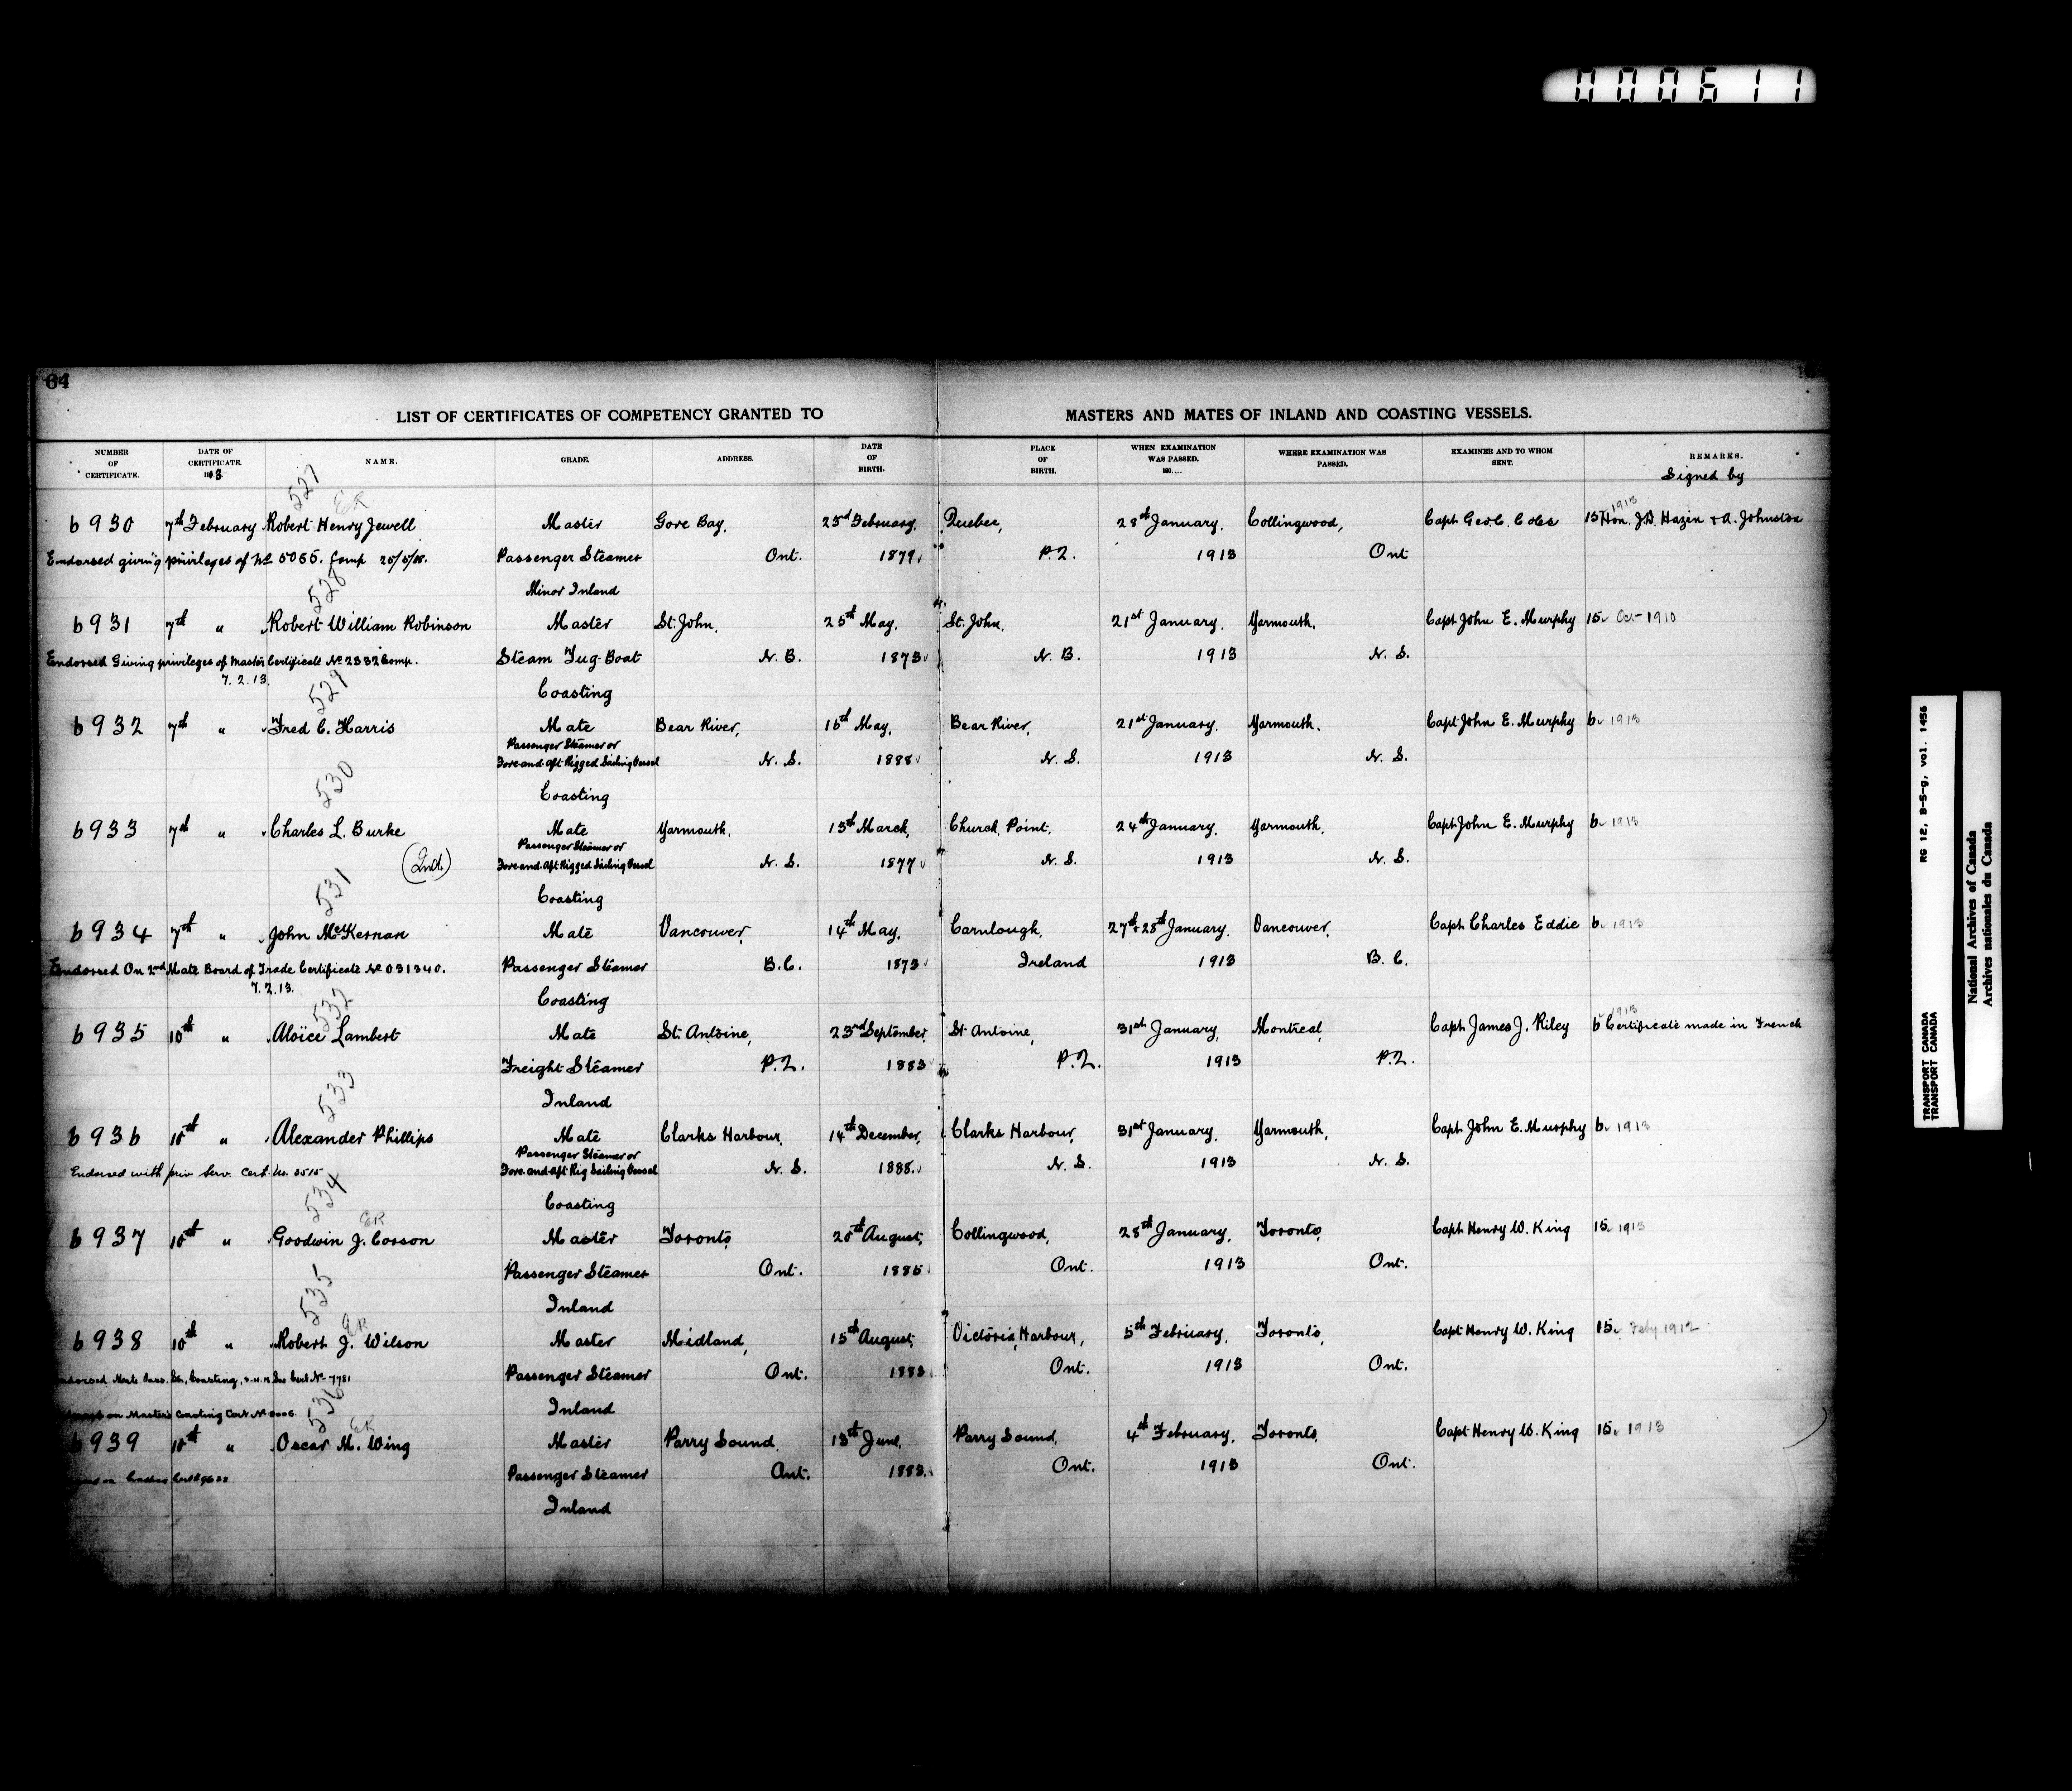 000611
64
LIST OF CERTIFICATES OF COMPETENCY GRANTED TO MASTERS AND MATES OF INLAND AND COASTING VESSELS.
NUMBER OF CERTIFICATE. DATE OF CERTIFICATE. NAME. GRADE. ADDRESS. DATE OF BIRTH. PLACE OF BIRTH. WHEN EXAMINATION WAS PASSED. 190.... WHERE EXAMINATION WAS PASSED. EXAMINER AND TO WHOM SENT. REMARKS.
Signed by
527 ER 1913
6930 7th February Robert Henry Jewell Master Gore Bay, 23rd February, Quebec, 28th January, Collingwood, Capt Geo C. Coles 15 Hon. J.D. Hazen & A. Johnston
Endorsed giving privileges of No 5055. Comp Passenger Steamer Ont. 1879 P.Q. 1913 Ont
528 Minor Inland
6931 7th " Robert William Robinson Master St. John, 25th May, St. John, 21st January, Yarmouth, Capt John E. Murphy 15 Oct 1910
Endorsed Giving privileges of Master Certificate No 2332 Comp. Steam Tug Boat N.B. 1873 N.B. 1913 N.S.
7.2.13.
529 Coasting
6932 7th " Fred C. Harris Mate Bear River, 16th May, Bear River, 21st January, Yarmouth, Capt John E. Murphy 6 1913
Passenger Steamer or
Fore-and-Aft Rigged Sailing Vessel N.S. 1888 N.S. 1913 N.S.
530 Coasting
6933 7th " Charles L. Burke Mate Yarmouth, 13th March, Church Point, 24th January, Yarmouth, Capt John E. Murphy 6 1913
Passenger Steamer or
(Ind.) Fore-and-Aft Rigged Sailing Vessel N.S. 1877 N.S. 1913 N.S.
531 Coasting
6934 7th " John McKernan Mate Vancouver, 14th May, Carnlough, 27th & 28th January, Vancouver, Capt Charles Eddie 6 1913
Endorsed On 2nd Mate Board of Trade Certificate No 031340. Passenger Steamer B.C. 1873 Ireland 1913 B.C.
7.2.13.
532 Coasting 1913
6935 10th " Aloïce Lambert Mate St. Antoine, 23rd September, St Antoine, 31st January, Montreal, Capt James J. Riley 6 Certificate made in French
Freight Steamer P.Q. 1883 P.Q. 1913 P.Q.
533 Inland
6936 10th " Alexander Phillips Mate Clarks Harbour, 14th December, Clarks Harbour, 31st January, Yarmouth, Capt John E. Murphy 6 1913
Passenger Steamer or
Endorsed with priv Serv. Cert. No. Fore-and-Aft Rig Sailing Vessel N.S. 1888 N.S. 1913 N.S.
534 Coasting
ER
6937 10th " Goodwin J. Corson Master Toronto, 20th August, Collingwood, 28th January, Toronto, Capt Henry W. King 15 1913
Passenger Steamer Ont. Ont. 1913 Ont.
535 Inland
ER
6938 10th " Robert J. Wilson Master Midland, 15th August, Victoria Harbour, 5th February, Toronto, Capt Henry W. King 15 Feby 1912
Passenger Steamer Ont. 1883 Ont. 1913 Ont.
on Master's Coasting Cert No Inland
536 ER
6939 10th " Oscar M. Wing Master Parry Sound, 13th June, Parry Sound, 4th February, Toronto, Capt Henry W. King 15 1913
Passenger Steamer Ont. 1883 Ont. 1913 Ont.
Inland
TRANSPORT CANADA RG 12, B-5-g, vol. 1456
TRANSPORT CANADA
National Archives of Canada
Archives nationales du Canada